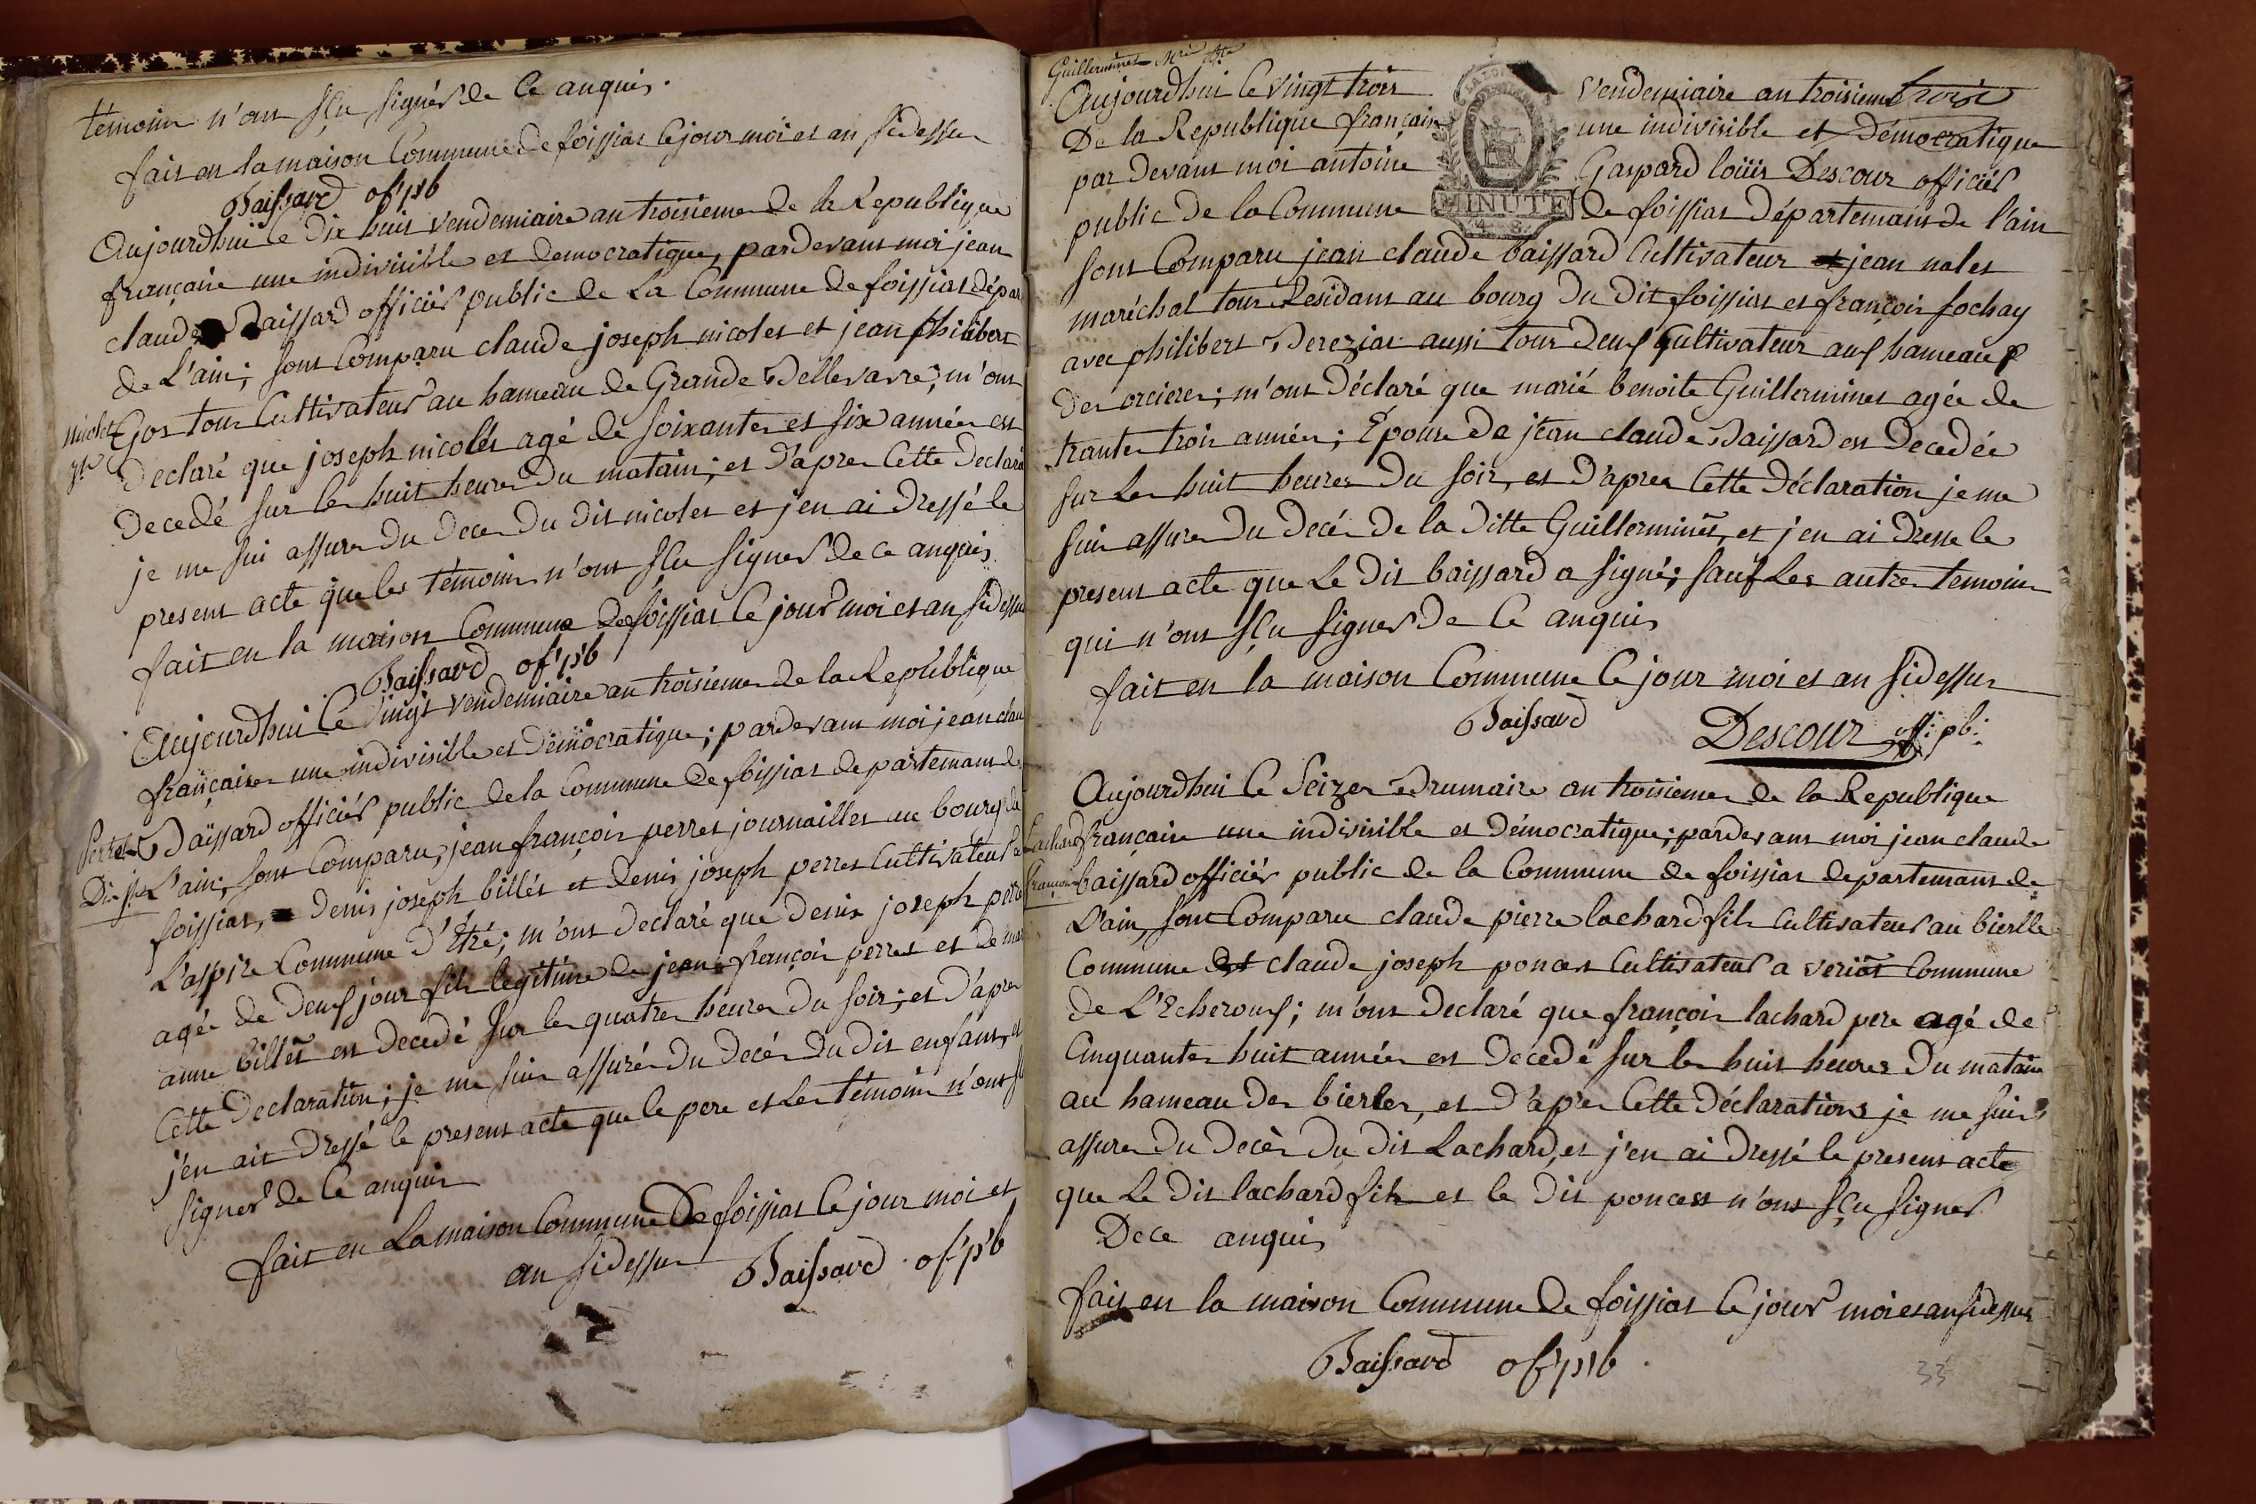 témoins n'ont sçu signér de ce anquis.
fait en la maison Commune de foissiat le jour moi et an sidessu
Baissard of' p'b
Aujourdhui le dix huit vendemiaire an troisieme de la Republique
française une indivisible et democratique, pardevant moi jean
claude Baissard officiér public de La Commune de foissiat dépar
de L'ain; sont Comparu claude joseph nicolet et jean philibert
Gos tous Cultivateur au hameau de Grande Dellevavre; m'ont
nicolet
jh
Declaré que joseph nicolet agé de soixante et six année est
Decedé sur les huit heures du matain; et d'apres Cette Declara
je me sui assures du deces du dit nicolet et j'en ai dressé le
present acte que les témoins n'ont sçu signer de ce anquis
fait en la maison Commune de foissiat le jour moi et an sidessu
Baissard of' p'b
Aujourdhui le vingt vendemiaire an troisieme de la Republique
française une indivisible et démocratique; pardevant moi jean clau
Perret Baissard officiér public de la Commune de foissiat departemant de
Dis jh L'ain; sont Comparu, jean françois perret journailler au bourg de
foissiat, denis joseph billét et denis joseph perret Cultivateur a
L'aspire Commune d'Étré; m'ont declaré que denis joseph perr
agée de deux jour fils legitime de jean françois perret et de mar
anne billet est decedé sur les quatre heures du soir; et d'apres
Cette declaration; je me suis assurér du decés du dit enfant, et
j'en ait dressé le present acte que le pere et Les témoins n'ont s
signer de ce anquis
fait en La maison Commune de foissiat le jour moi et
an sidessu Baissard of' p'b
Guillerminet Mrie Bte
Aujourdhui le vingt trois vendemiaire an troisieme
De la Republique française une indivisible et démocratique
par devant moi antoine Gaspard loüis Descour officiér
public de la Commune de foissiat département de l'ain
MINUTE
sont Comparu jean claude baissard Cultivateur jean nalet
maréchal tous Residans au bourg du dit foissiat et françois fochay
avec philibert Dereziat aussi tous deux Cultivateur aux hameaux
des orcieres; m'ont déclaré que marié benoite Guillerminet agée de
trante trois années; Épouse de jean claude Baissard est decedée
sur Les huit heures du soir, et d'apres Cette déclaration je me
suis assures du decés de la ditte Guilleminet, et j'en ai dresse le
present acte que Le dit baissard a signé; sauf Les autres temoins
qui n'ont sçu signer de ce anquis
fait en la maison Commune le jour moi et an sidessus
Baissard Descour off: pb:
Aujourdhui le Seize Brumaire an troisieme de la Republique
Lachard française une indivisible et démocratique; pardevant moi jean claude
françois baissard officiér public de la Commune de foissiat departemant de
L'ain, sont Comparu claude pierre lachard fils Cultivateur au bierlle
Commune claude joseph poncet Cultivateur a veriat Commune
de L'Echeroux; m'ont declaré que françois lachard pere agé de
Cinquante huit années est decedé sur les huit heures Du matain
au hameau des bierles, et d'apres Cette déclaration je me suis
assures du decès du dit Lachard, et j'en ai dressé le present acte
que Le dit lachard fils et le dit poncet n'ont sçu signer
De ce anquis
fait en la maison Commune de foissiat le jour moi et an sidessus
Baissard of' p'b
33